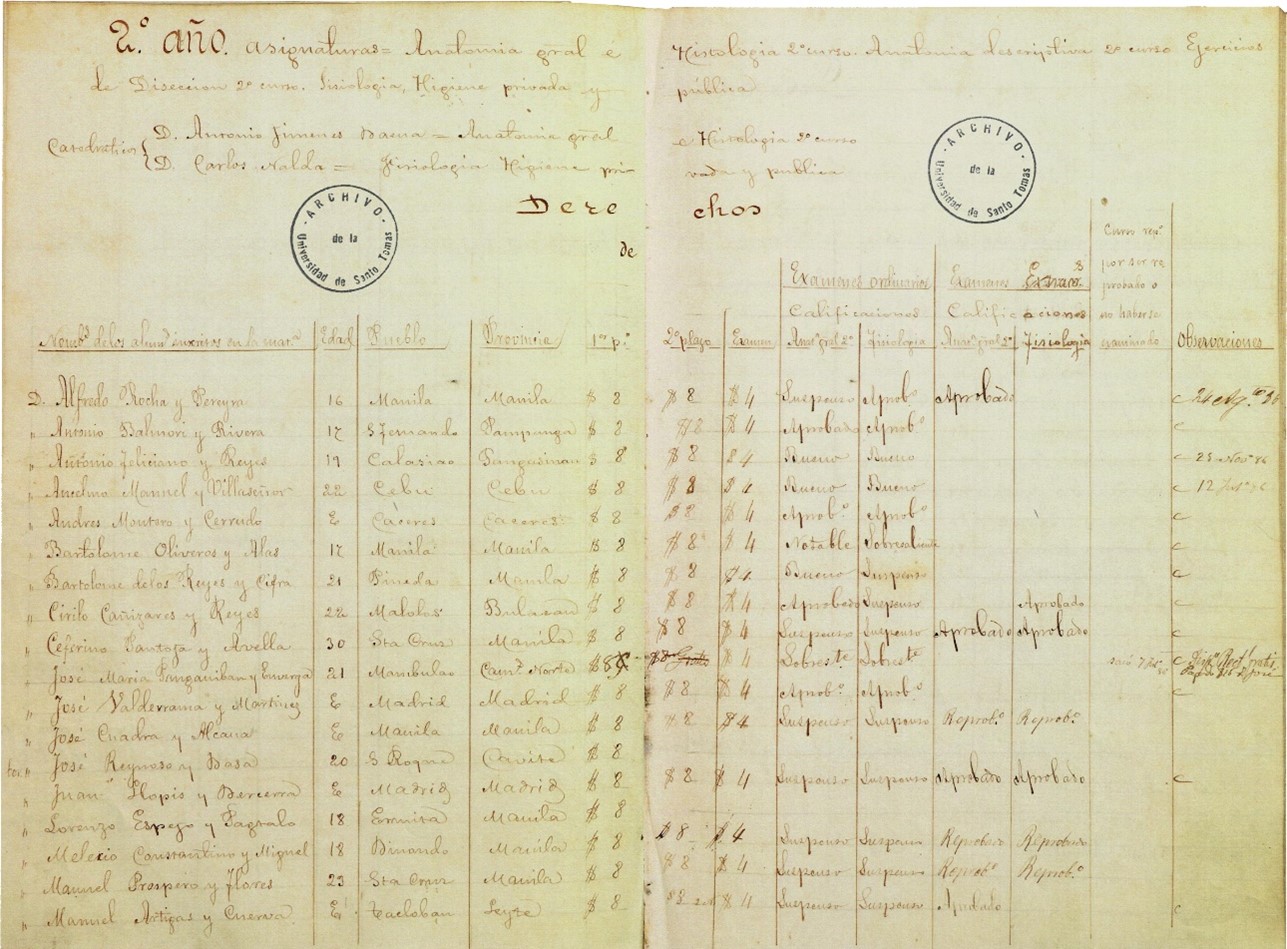 2.º año. asignaturas = Anatomia gral e Histologia 2º curso. Anatomia descriptiva 2º curso Ejercicios
de Diseccion 2º curso. Fisiologia, Higiene privada y pública
Catedraticos { D. Antonio Jimenes Baena = Anatomia gral e Histologia 2º curso
D. Carlos Nalda = Fisiologia Higiene privada y publica
ARCHIVO de la Universidad de Santo Tomas
ARCHIVO de la Universidad de Santo Tomas
Derechos
de
Curso
por ser re
probado o
no haberse
examinado
Examenes ordinarios Examenes
Calificaciones Calificaciones
Nombs. de los alums. inscritos en la mata. Edad Pueblo Provincia 1er p. 2º plazo Examen Anat. gral 2º Fisiologia Anat. gral 2º Fisiologia Observaciones
D. Alfredo Rocha y Pereyra 16 Manila Manila $ 8 $ 8 $ 4 Suspenso Aprob.º Aprobado
" Antonio Balmori y Rivera 17 S Fernando Pampanga $ 8 $ 8 $ 4 Aprobado Aprob.º
" Antonio Feliciano y Reyes 19 Calasiao Pangasinan $ 8 $ 8 $ 4 Bueno Bueno
" Anselmo Manuel y Villaseñor 22 Cebú Cebu $ 8 $ 8 $ 4 Bueno Bueno 12
" Andres Montero y Cerrudo E Cáceres Caceres $ 8 $ 8 $ 4 Aprob.º Aprob.º
" Bartolome Oliveros y Alas 17 Manila Manila $ 8 $ 8 $ 4 Notable Sobresaliente
" Bartolome de los Reyes y Cifra 21 Pineda Manila $ 8 $ 8 $ 4 Bueno Suspenso
" Cirilo Cañizares y Reyes 22 Malolos Bulacan $ 8 $ 8 $ 4 Aprobado Suspenso Aprobado
" Ceferino Pantoja y Avella 30 Sta Cruz Manila $ 8 $ 8 $ 4 Suspenso Suspenso Aprobado Aprobado
" José Maria Panganiban y Enverga 21 Mambulao Cam.s Norte $ 8 $ 4 Sobreste Sobreste
" José Valderrama y Martinez E Madrid Madrid $ 8 $ 8 $ 4 Aprob.º Aprob.º
" José Cuadra y Alcaua E Manila Manila $ 8 $ 8 $ 4 Suspenso Suspenso Reprob.º Reprob.º
" José Reynoso y Basa 20 S Roque Cavite $ 8
" Juan Llopis y Bercerra E Madrid Madrid $ 8 $ 8 $ 4 Suspenso Suspenso Aprobado Aprobado
" Lorenzo Espejo y 18 Ermita Manila $ 8
" Melecio Constantino y Miguel 18 Binondo Manila $ 8 $ 8 $ 4 Suspenso Suspenso Reprobado Reprobado
" Manuel Prospero y Flores 23 Sta Cruz Manila $ 8 $ 8 $ 4 Suspenso Suspenso Reprob.º Reprob.º
" Manuel Artigas y Cuerva E Tacloban Leyte $ 8 $ 8 $ 4 Suspenso Suspenso